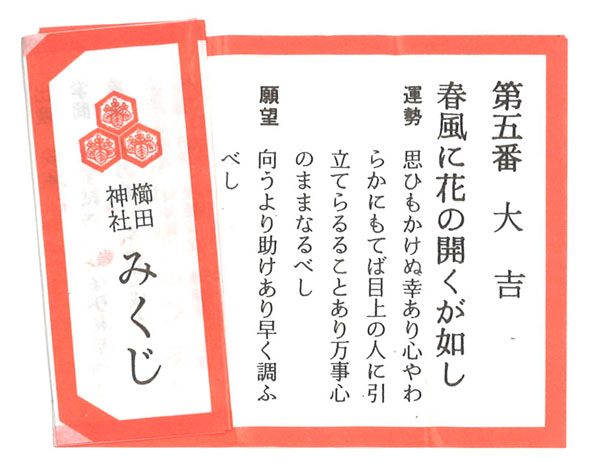 第五番 大吉
春風に花の開くが如し
運勢 思ひもかけぬ幸あり心やわ
らかにもてば目上の人に引
立てらるることあり万事心
のままなるべし
願望 向うより助けあり早く調ふ
べし
櫛田
神社
みくじ